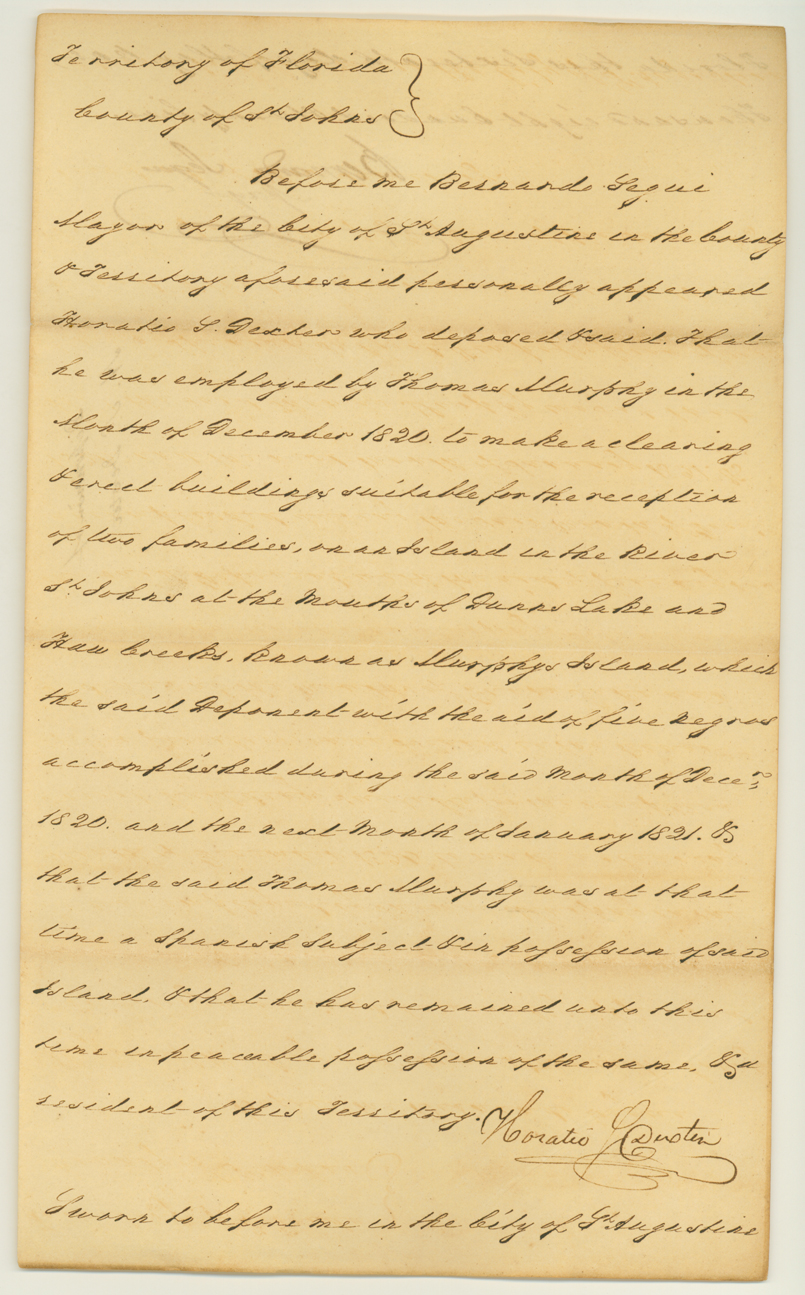 Territory of Florida
County of St. Johns
Before me Bernardo Segui
Mayor of the City of St. Augustine in the County
& Territory aforesaid personally appeared
Horatio S. Dexter who deposed & said. That
he was employed by Thomas Murphy in the
Month of December 1820. to make a clearing
& erect buildings suitable for the reception
of two families, on an Island in the River
St. Johns at the Mouths of Dunns Lake and
Haw Creeks, known as Murphys Island, which
the said Deponent with the aid of five Negros
accomplished during the said Month of Decer.
1820. and the next Month of January 1821. &
that the said Thomas Murphy was at that
time a Spanish Subject & in possession of said
Island. & that he has remained unto this
time in peaceable possession of the same, & a
resident of this Territory.
Horatio S Dexter
Sworn to before me in the City of St. Augustine